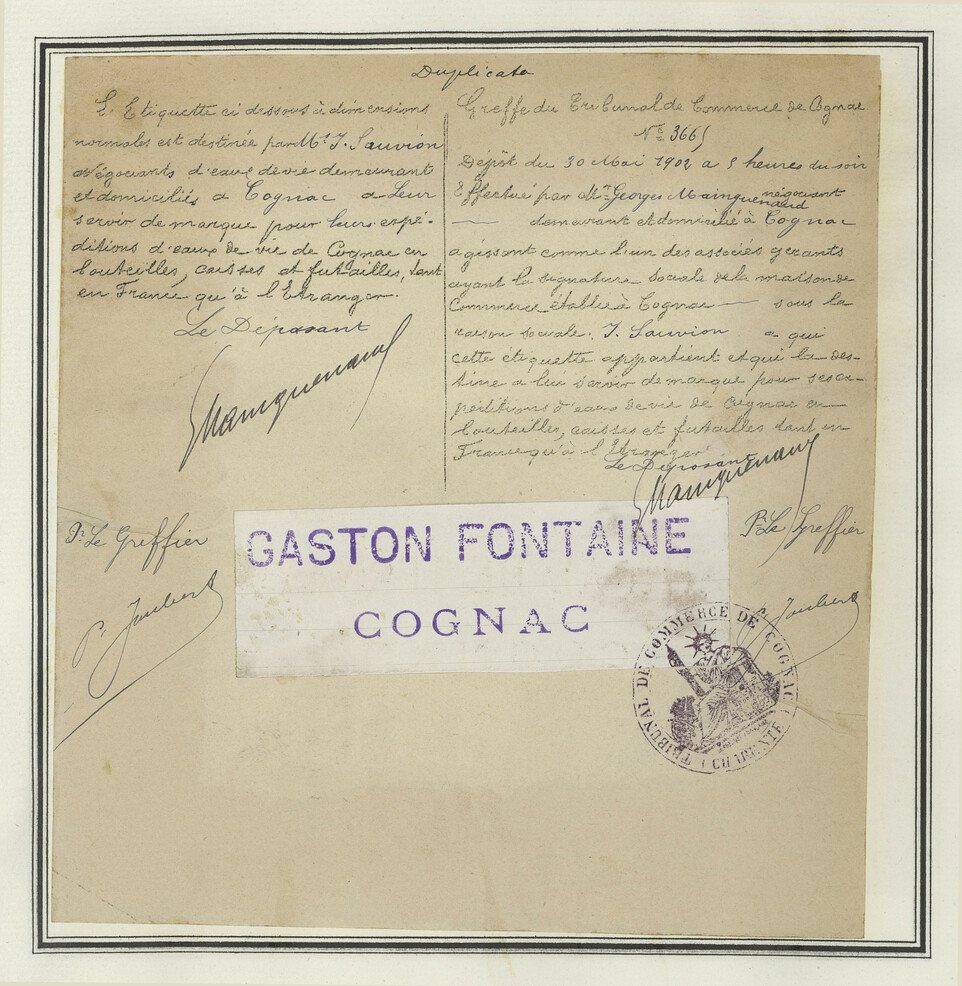 Duplicata
L'Etiquette ci dessous à dimensions
normales est destinée par Mrs J. Sauvion
négociants d'eaux de vie demeurant
et domiciliés a Cognac a Leur
servir de marque pour leurs expé-
ditions d'eaux de vie de Cognac en
bouteilles, caisses et futailles, tant
en France qu'à l'Etranger.
Le Déposant
Mainguenaud
Greffe du Tribunal de Commerce de Cognac
No 3665
Dépôt du 30 Mai 1902 a 5 heures du soir
Effectué par Mr Georges Mainguenaud négociant
demeurant et domicilié à Cognac
agissant comme l'un des associés gerants
ayant la signature sociale de la maison de
Commerce établie à Cognac — sous la
raison sociale: J. Sauvion a qui
cette étiquette appartient et qui la des-
tine a lui servir de marque pour ses ex-
péditions d'eaux de vie de Cognac en
bouteilles, caisses et futailles tant en
France qu'à l'Etranger
Le Déposant
Mainguenaud
Pr Le Greffier
P. Joubert
GASTON FONTAINE
COGNAC
Pr Le Greffier
P. Joubert
TRIBUNAL DE COMMERCE DE COGNAC
(CHARENTE)